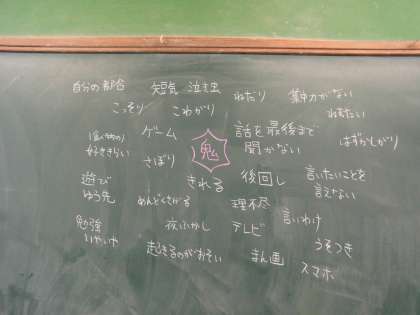 自分の都合
短気
泣き虫
ねだり
集中力がない
ねむたい
こっそり
こわがり
ゲーム
鬼
話を最後まで
聞かない
はずかしがり
好ききらい
さぼり
きれる
後回し
言いたいことを
言えない
遊び
ゆう先
めんどくさがる
理不尽
言いわけ
勉強
いやいや
夜ふかし
テレビ
うそつき
起きるのがおそい
まん画
スマホ